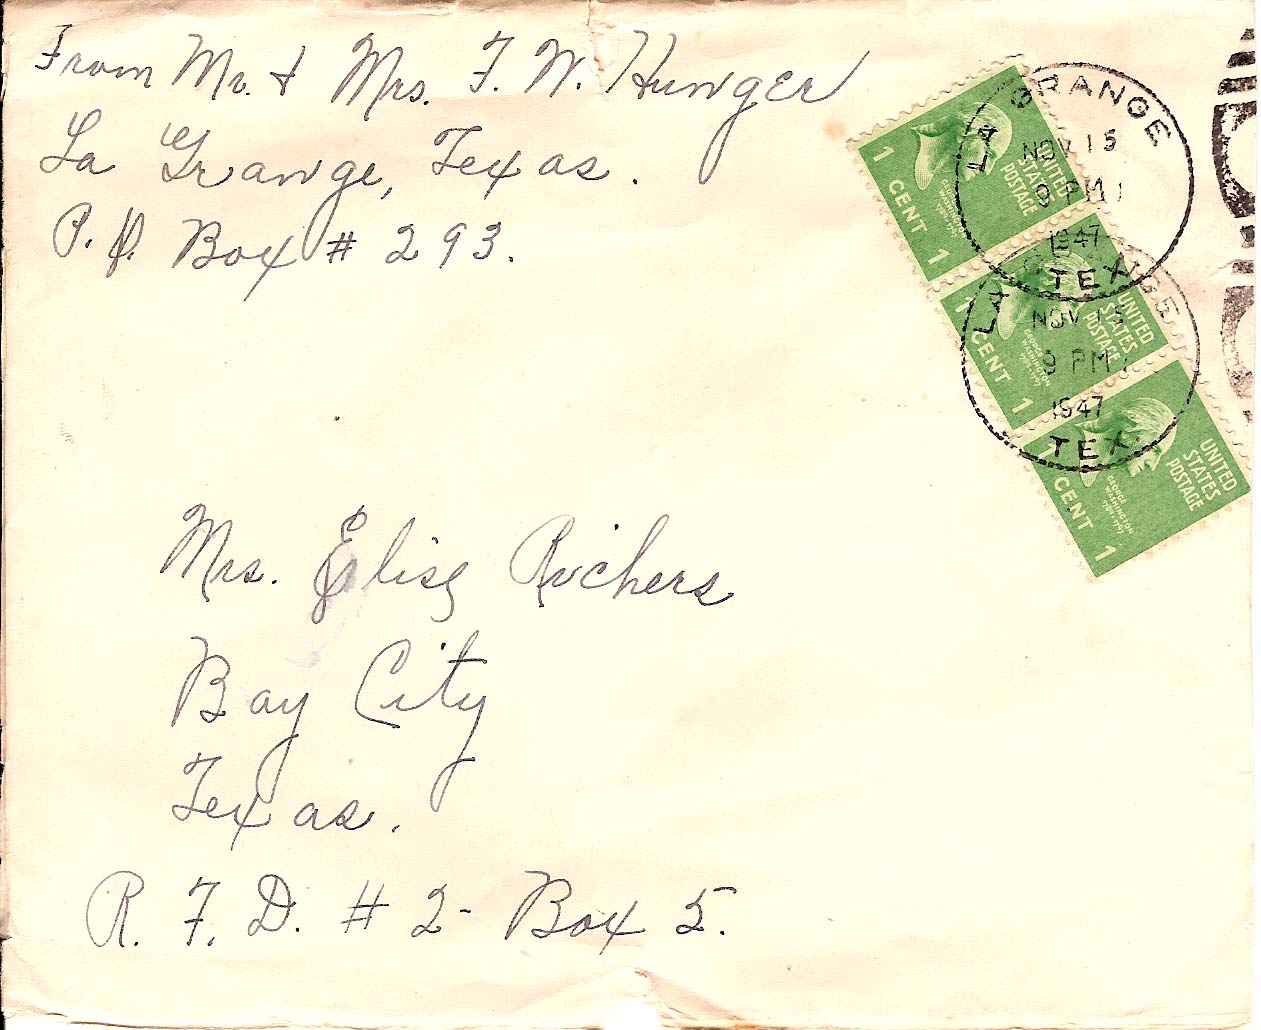 From Mr. & Mrs. F. W. Hunger
La Grange, Texas.
P. O. Box # 293.
LA GRANGE
NOV 15
9 PM
1947
TEX.
1 CENT 1
GEORGE WASHINGTON
1789-1797
UNITED
STATES
POSTAGE
LA
NOV 15
9 PM
1947
TEX.
1 CENT 1
GEORGE
WASHINGTON
1789-1797
UNITED
STATES
POSTAGE
1 CENT 1
GEORGE
WASHINGTON
1789-1797
UNITED
STATES
POSTAGE
Mrs. Elise Richers
Bay City
Texas.
R. F. D. # 2 - Box 5.